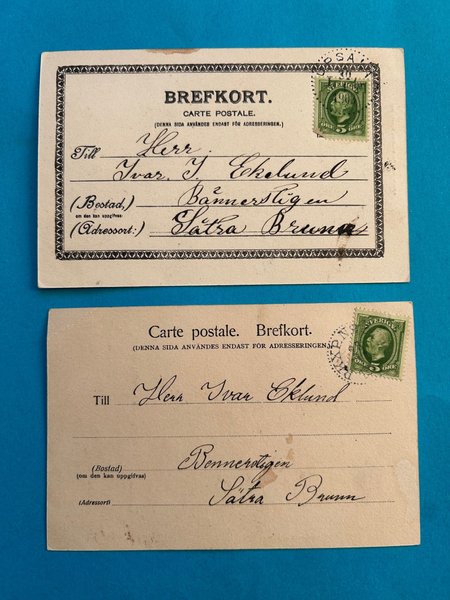 UPSALA
30
SVERIGE
ÖRE 5 ÖRE
BREFKORT.
CARTE POSTALE.
(DENNA SIDA ANVÄNDES ENDAST FÖR ADRESSERINGEN.)
Till Herr
Ivar. J. Ekelund
(Bostad, Bännerstigen
om den kan uppgifvas)
(Adressort:) Sätra Brunn
SVERIGE
5 ÖRE
Carte postale. Brefkort.
(DENNA SIDA ANVÄNDES ENDAST FÖR ADRESSERINGEN.)
Till Herr Ivar Eklund
Bennerstigen
(Bostad)
(om den kan uppgifvas)
Sätra Brunn
(Adressort)